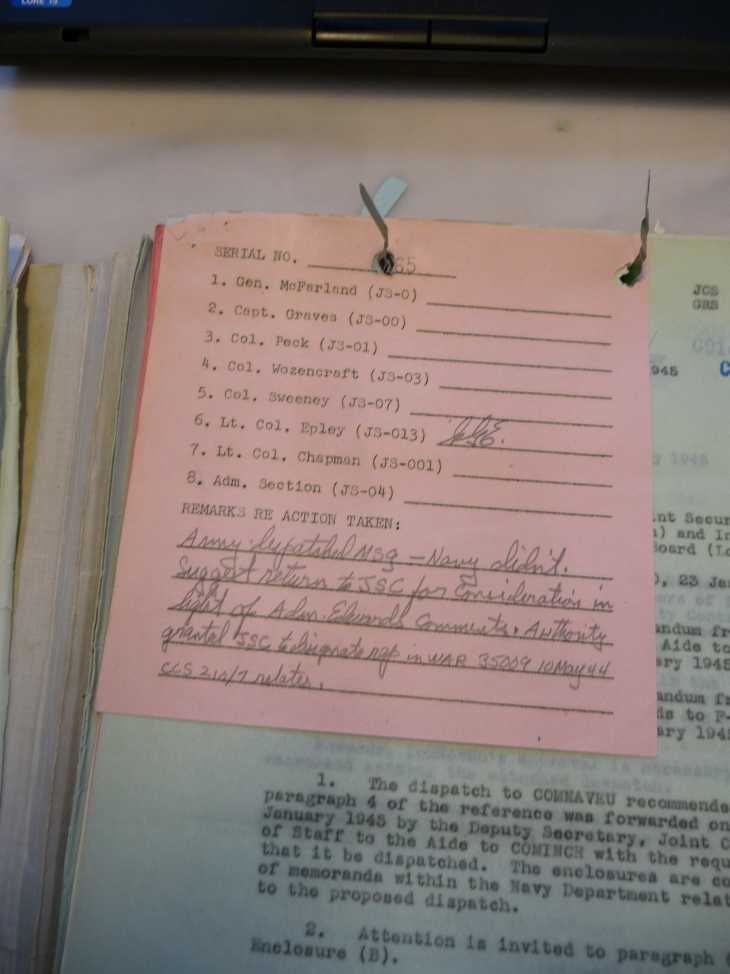 CORE i5
SERIAL NO. 85
1. Gen. McFarland (JS-0)
2. Capt. Graves (JS-00)
3. Col. Peck (JS-01)
4. Col. Wozencraft (JS-03)
5. Col. Sweeney (JS-07)
6. Lt. Col. Epley (JS-013)
7. Lt. Col. Chapman (JS-001)
8. Adm. Section (JS-04)
REMARKS RE ACTION TAKEN:
Army dispatched MSG - Navy didn't.
Suggest return to JSC for Consideration in
light of Adm. Edwards Comments. Authority
granted JSC to designate rep in WAR 35009 10 May 44
CCS 210/7 relates.
JCS
GRS
945
C
y 1945
int Secur
) and In
Board (Lo
), 23 Jan
andum fr
Aide to
ary 1945
andum fr
ds to F-
ary 194
1. The dispatch to COMNAVEU recommende
paragraph 4 of the reference was forwarded on
January 1945 by the Deputy Secretary, Joint C
of Staff to the Aide to COMINCH with the requ
that it be dispatched. The enclosures are co
of memoranda within the Navy Department relat
to the proposed dispatch.
2. Attention is invited to paragraph
Enclosure (B).